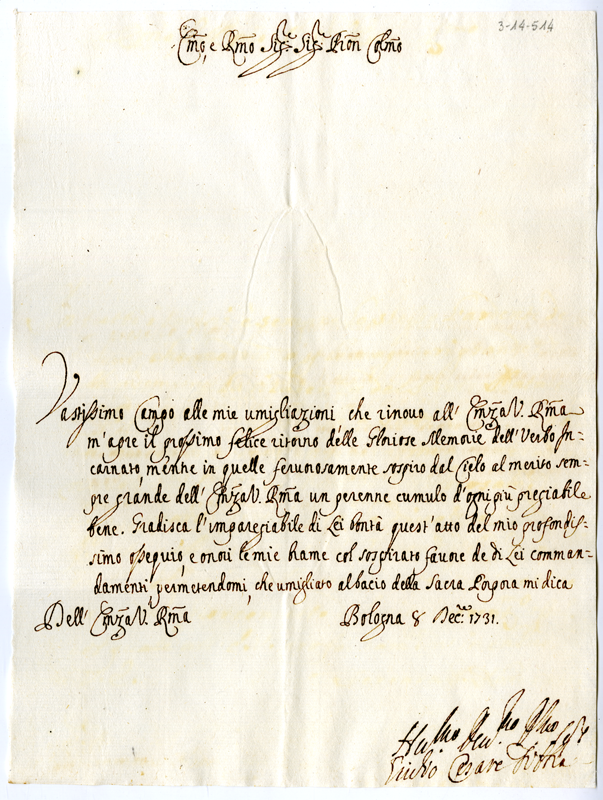 3-14-514
Em̃o, e Rm̃o Sigͬe Sigͬe Pron̄ Colm̃o
Vastissimo Campo alle mie umigliazioni che rinovo all' Em̃za V. Rm̃a
m'apre il prossimo felice ritorno délle Gloriose Memorie dell' Verbo In=
carnato, mentre in quelle ferurosamente sospiro dal Cielo al merito sem=
pre grande dell' Em̃za V. Rm̃a un perenne cumulo d'ogni più pregiabile
bene. Gradisca l'impareggiabile di Lei bontà quest'atto del mio profondis=
simo osseguio, e onori le mie brame col sospirato favore de di Lei comman=
damenti, permetendomi, che umigliato al bacio della Sacra Porpora mi dica
Dell' Em̃za V. Rm̃a Bologna 8 Decͬe 1731.
Hu.mo Deu.mo
Giulio Cesare